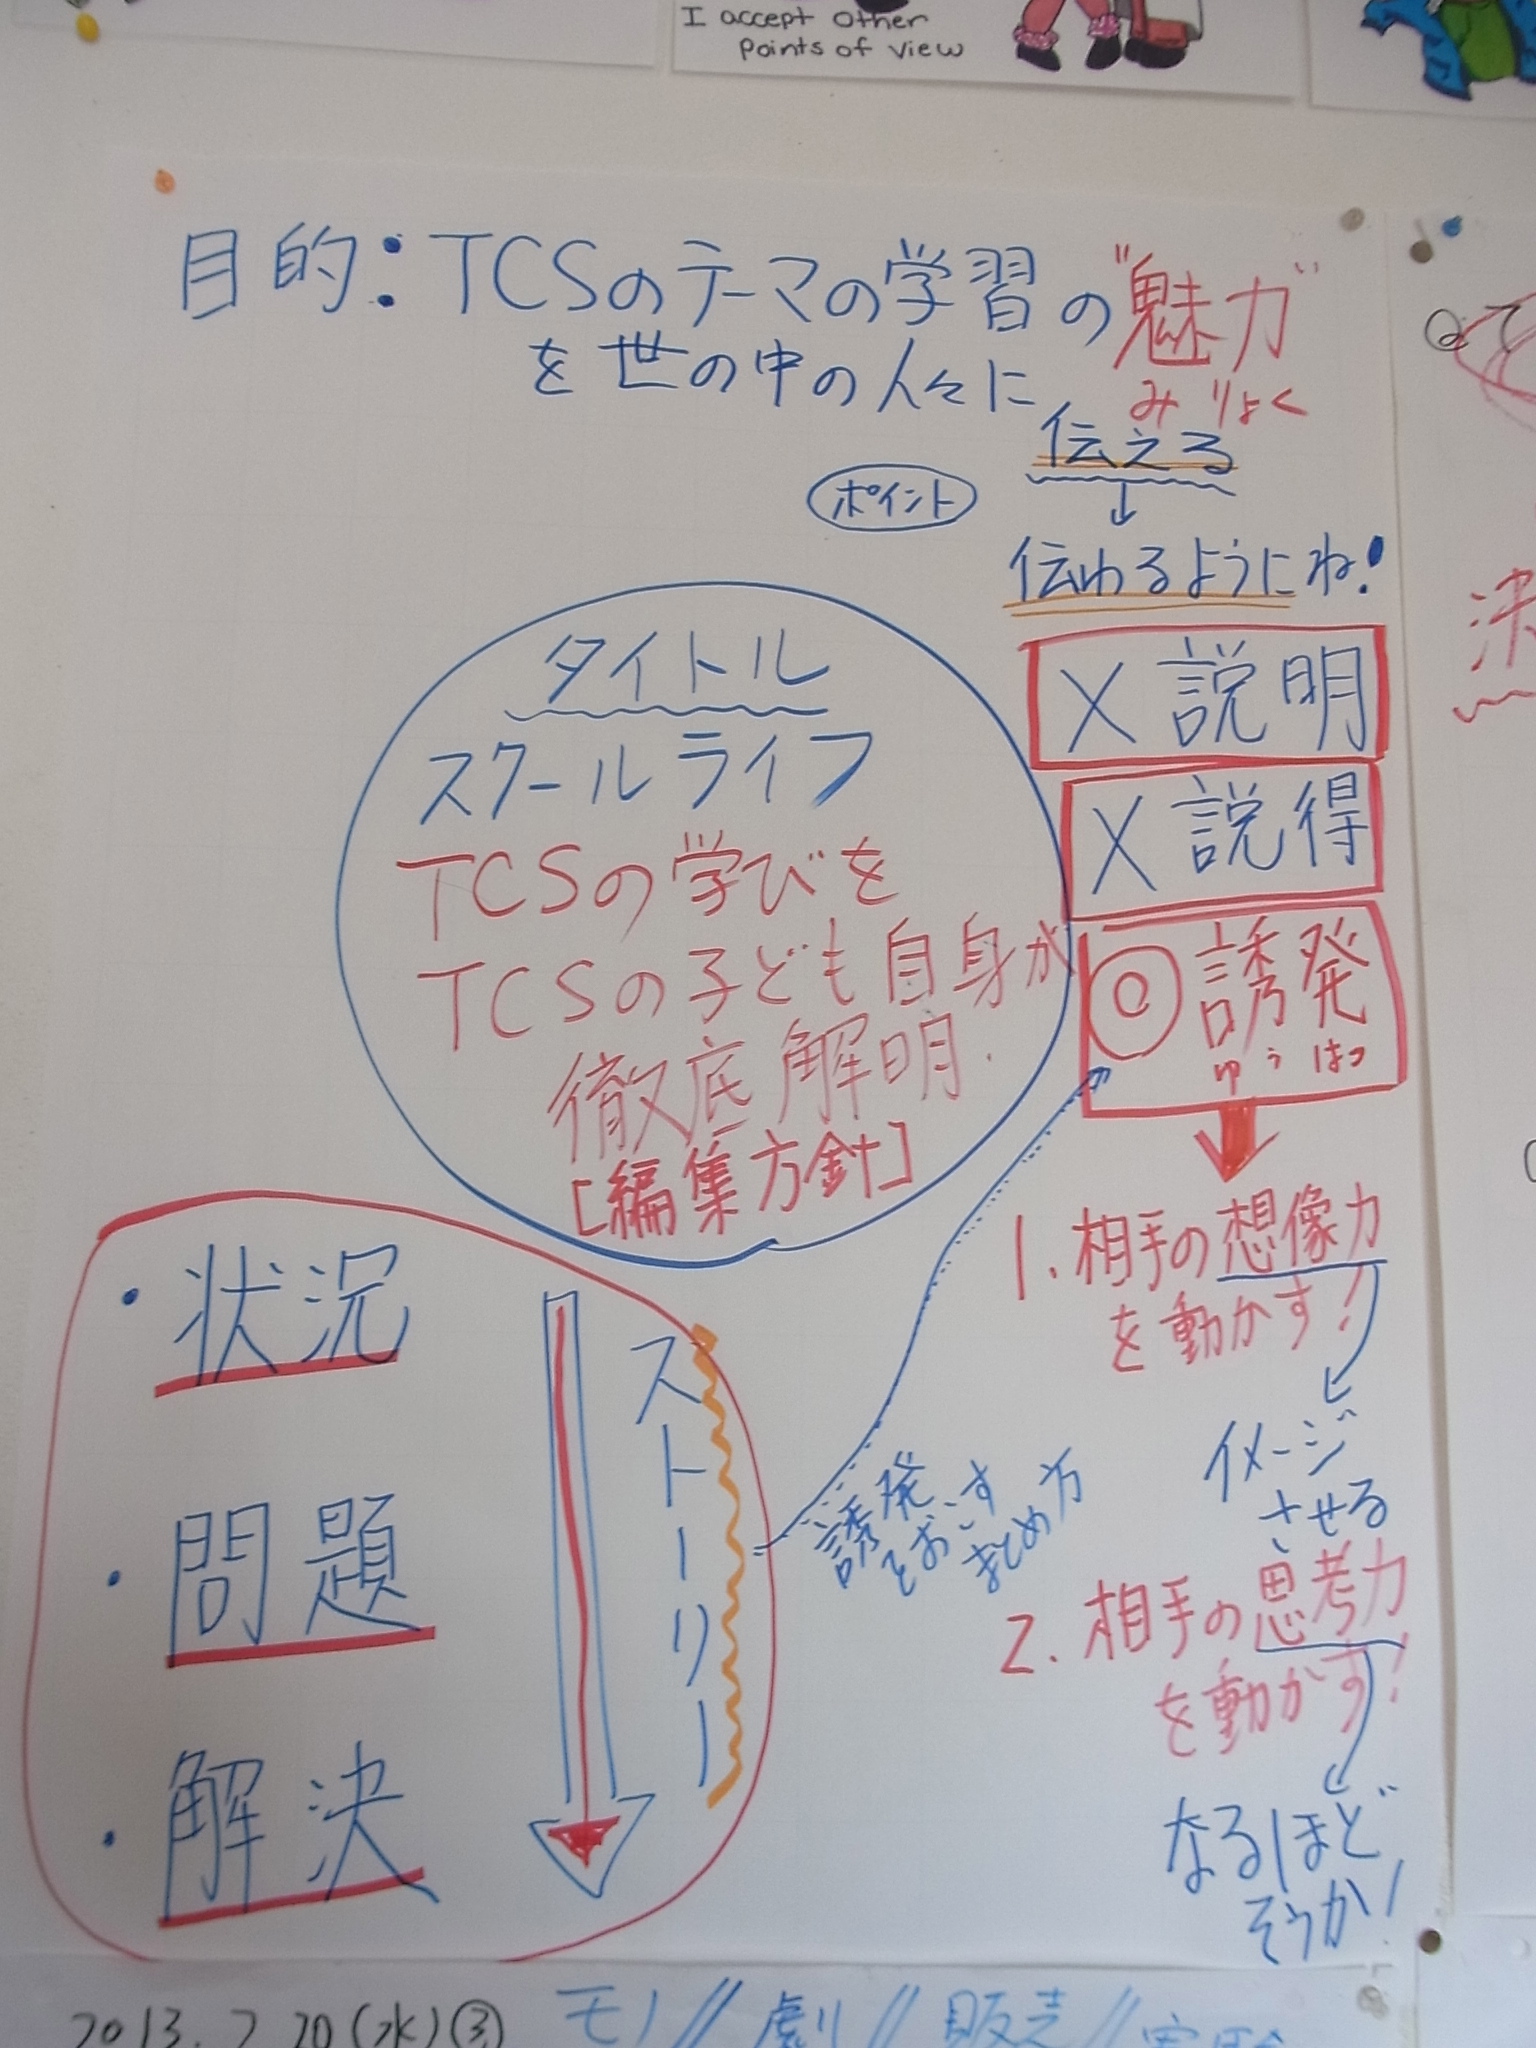 I accept other
points of view
目的:TCSのテーマの学習の"魅力"
みりょく
を世の中の人々に
伝える
ポイント
伝わるようにね!
タイトル
スクールライフ
TCSの学びを
TCSの子ども自身が
徹底解明.
[編集方針]
X 説明
X 説得
◎ 誘発
ゆうはつ
1. 相手の想像力
を動かす!
イメージ
させる
2. 相手の思考力
を動かす!
なるほど
そうか!
・状況
・問題
・解決
ストーリー
誘発
をおこす
まとめ方
決
2013. 2 20(水)③
モノ//劇//販売//